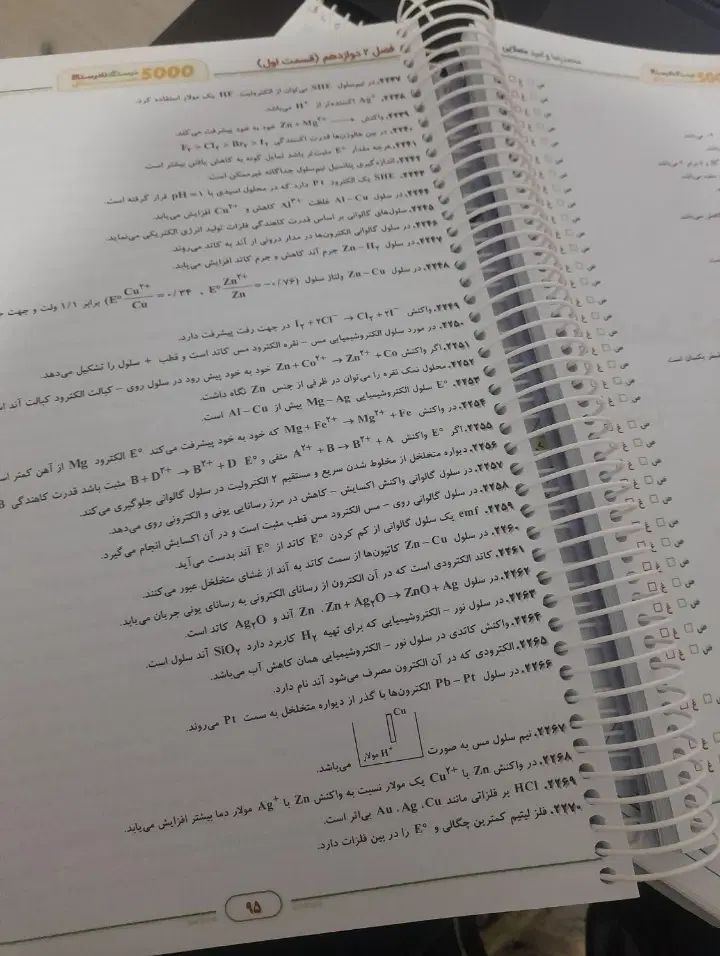 5000
فصل ۲ دوازدهم (قسمت اول)
۲۲۳۷. در نیم‌سلول SHE می‌توان از الکترولیت HF یک مولار استفاده کرد.
۲۲۳۸. Ag⁺ اکسنده‌تر از H⁺ می‌باشد.
۲۲۳۹. واکنش Zn + Mg²⁺ خود به خود پیشرفت می‌کند.
۲۲۴۰. در بین هالوژن‌ها قدرت اکسندگی F₂ > Cl₂ > Br₂ > I₂
۲۲۴۱. هرچه مقدار E° مثبت‌تر باشد تمایل گونه به کاهش یافتن بیشتر است
۲۲۴۲. اندازه‌گیری پتانسیل نیم‌سلول جداگانه غیرممکن است.
۲۲۴۳. SHE یک الکترود Pt دارد که در محلول اسیدی با pH = ۱ قرار گرفته است.
۲۲۴۴. در سلول Al – Cu غلظت Al³⁺ کاهش و Cu²⁺ افزایش می‌یابد.
۲۲۴۵. سلول‌های گالوانی بر اساس قدرت کاهندگی فلزات تولید انرژی الکتریکی می‌نماید.
۲۲۴۶. در سلول گالوانی الکترون‌ها در مدار درونی از آند به کاتد می‌روند.
۲۲۴۷. در سلول Zn – H₂ جرم آند کاهش و جرم کاتد افزایش می‌یابد.
۲۲۴۸. در سلول Zn – Cu ولتاژ سلول (E° Zn²⁺/Zn = −۰/۷۶ ، E° Cu²⁺/Cu = ۰/۳۴) برابر ۱/۱ ولت و جهت
۲۲۴۹. واکنش I₂ + ۲Cl⁻ → Cl₂ + ۲I⁻ در جهت رفت پیشرفت دارد.
۲۲۵۰. در مورد سلول الکتروشیمیایی مس – نقره الکترود مس کاتد است و قطب + سلول را تشکیل می‌دهد.
۲۲۵۱. اگر واکنش Zn + Co²⁺ → Zn²⁺ + Co خود به خود پیش رود در سلول روی – کبالت الکترود کبالت آند
۲۲۵۲. محلول نمک نقره را می‌توان در ظرفی از جنس Zn نگاه داشت.
۲۲۵۳. E° سلول الکتروشیمیایی Mg – Ag بیش از Al – Cu است.
۲۲۵۴. در واکنش Mg + Fe²⁺ → Mg²⁺ + Fe که خود به خود پیشرفت می‌کند E° الکترود Mg از آهن کمتر
۲۲۵۵. اگر E° واکنش A²⁺ + B → B²⁺ + A منفی و E° B + D²⁺ → B²⁺ + D مثبت باشد قدرت کاهندگی B
۲۲۵۶. دیواره متخلخل از مخلوط شدن سریع و مستقیم ۲ الکترولیت در سلول گالوانی جلوگیری می‌کند.
۲۲۵۷. در سلول گالوانی واکنش اکسایش – کاهش در مرز رسانایی یونی و الکترونی روی می‌دهد.
۲۲۵۸. در سلول گالوانی روی – مس الکترود مس قطب مثبت است و در آن اکسایش انجام می‌گیرد.
۲۲۵۹. emf یک سلول گالوانی از کم کردن E° کاتد از E° آند بدست می‌آید.
۲۲۶۰. در سلول Zn – Cu کاتیون‌ها از سمت کاتد به آند از غشای متخلخل عبور می‌کنند.
۲۲۶۱. کاتد الکترودی است که در آن الکترون از رسانای الکترونی به رسانای یونی جریان می‌یابد.
۲۲۶۲. در سلول Zn + Ag₂O → ZnO + Ag ، Zn آند و Ag₂O کاتد است.
۲۲۶۳. در سلول نور – الکتروشیمیایی که برای تهیه H₂ کاربرد دارد SiO₂ آند سلول است.
۲۲۶۴. واکنش کاتدی در سلول نور – الکتروشیمیایی همان کاهش آب می‌باشد.
۲۲۶۵. الکترودی که در آن الکترون مصرف می‌شود آند نام دارد.
۲۲۶۶. در سلول Pb – Pt الکترون‌ها با گذر از دیواره متخلخل به سمت Pt می‌روند.
Cu
مولار H⁺
۲۲۶۷. نیم سلول مس به صورت می‌باشد.
۲۲۶۸. در واکنش Zn با Cu²⁺ یک مولار نسبت به واکنش Zn با Ag⁺ مولار دما بیشتر افزایش می‌یابد.
۲۲۶۹. HCl بر فلزاتی مانند Au ، Ag ، Cu بی‌اثر است.
۲۲۷۰. فلز لیتیم کمترین چگالی و E° را در بین فلزات دارد.
۹۵